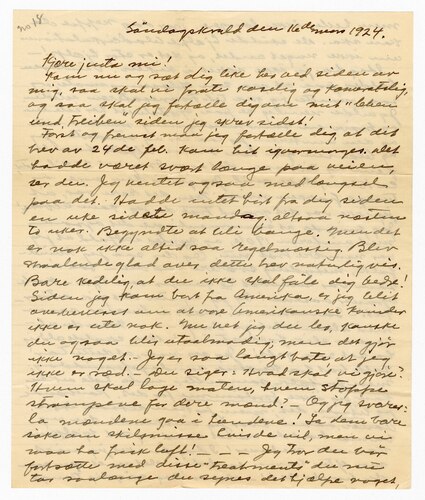 Søndagskvæld den 16de mars 1924.
Kjære justa mi!
Kom nu og sæt dig like her ved siden av
mig, saa skal vi prate koselig og kameratslig,
og saa skal jeg fortælle dig om mit "leben
und treiben" siden jeg skrev sidst!
Først og fremst maa jeg fortælle dig at dit
brev av 24de feb. kom hit igaarmorges. Det
hadde været svært længe paa veien,
ser du. Jeg ventet ogsaa med længsel
paa det. Hadde intet hørt fra dig siden
en uke sidste mandag, altsaa næsten
to uker. Begyndte at bli bange. Men det
er nok ikke altid saa regelmæssig. Blev
straalende glad over dette brev naturligvis.
Bare kedelig, at du ikke skal føle dig bedre!
Siden jeg kom bort fra Amerika, er jeg blit
overbevist om at vore Amerikanske kvinder
ikke er ute nok. Nu vet jeg du ler, kanske
du ogsaa blir utaalmodig; men det gjør
ikke noget. – Jeg er saa langt borte at jeg
ikke er ræd. – Du siger: Hvad skal vi gjøre?
Hvem skal lage maten, hvem stoppe
strømpene for vore mænd? – Og jeg svarer:
la mændene gaa i hundene! La dem bare
søke om skilsmisse hvis de vil, men vi
maa ha frisk luft! – – – Jeg tror du bør
fortsætte med disse "treatments" du nu
tar saalænge du synes det hjælper noget,